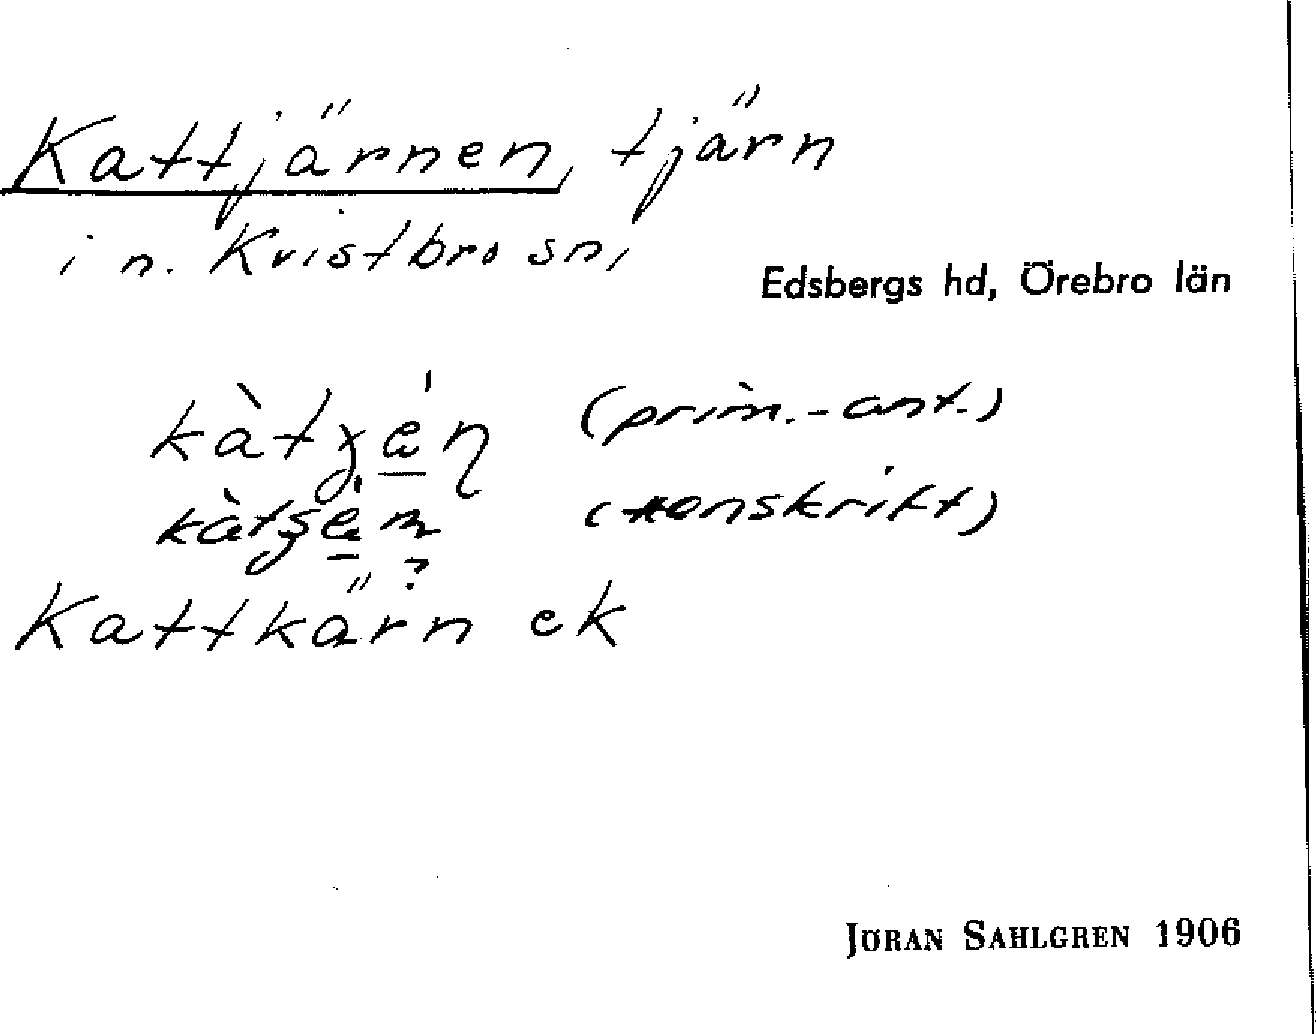 Kattjärnen, tjärn
i n. Kvistbro sn,
Edsbergs hd, Örebro län
(prim.-ant.)
(renskrift)
?
Kattkärn ek
JÖRAN SAHLGREN 1906